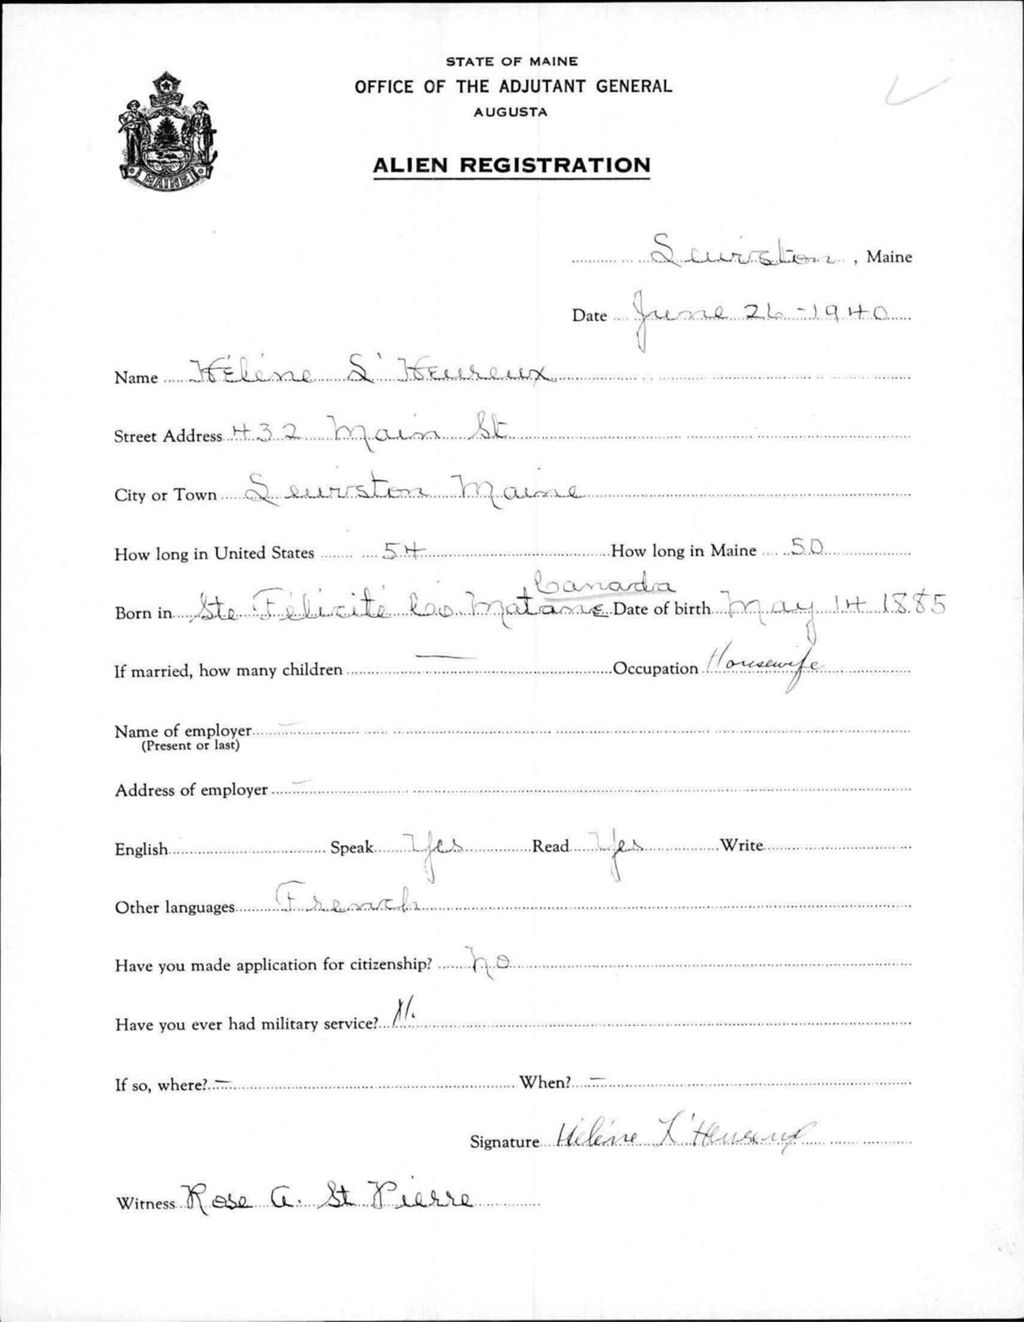 STATE OF MAINE
OFFICE OF THE ADJUTANT GENERAL
AUGUSTA
ALIEN REGISTRATION
MAINE
Lewiston, Maine
Date June 26 - 1940
Name Hélène L'Heureux
Street Address 432 Main St
City or Town Lewiston Maine
How long in United States 54 How long in Maine 50
Canada
Born in Ste Félicité Co Matane Date of birth May 14 1885
If married, how many children — Occupation Housewife
Name of employer —
(Present or last)
Address of employer —
English Speak Yes Read Yes Write
Other languages French
Have you made application for citizenship? No
Have you ever had military service?
If so, where? — When? —
Signature Hélène L'Heureux
Witness Rose A. St Pierre